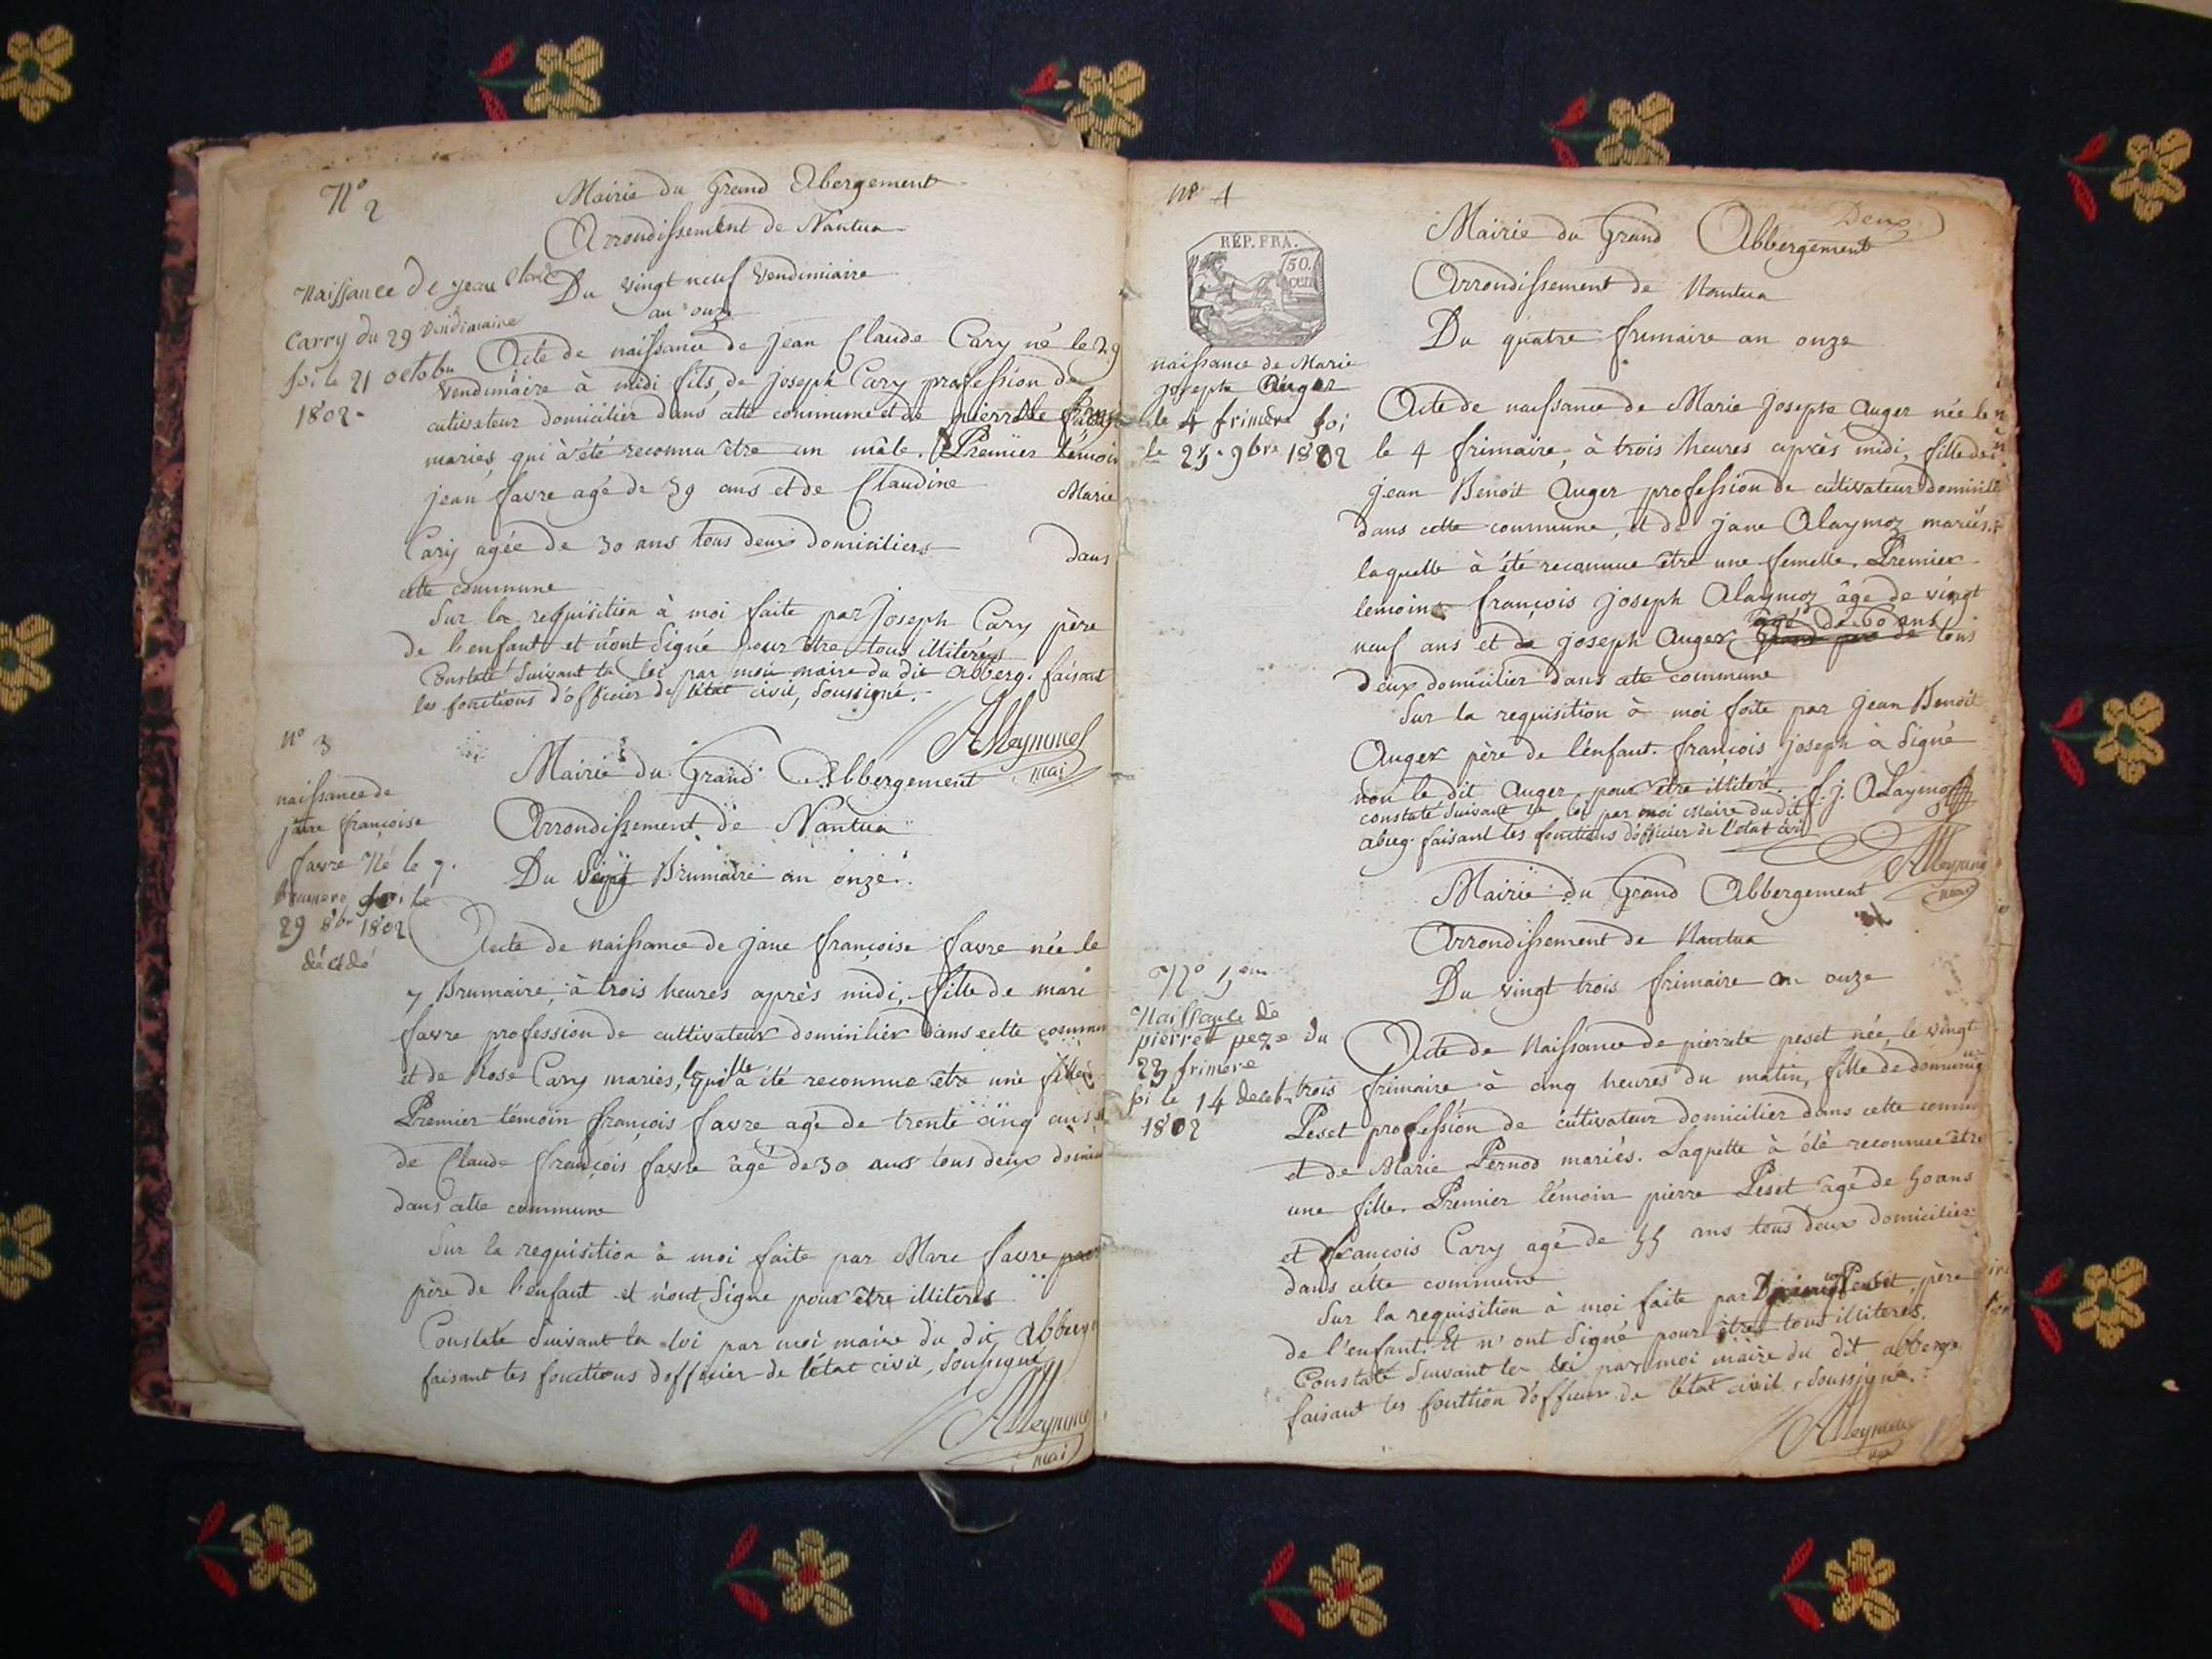 N° 2
Mairie du Grand Abergement
Arrondissement de Nantua
Naissance de jean Claude
Carry du 29 Vendimaire
soi le 21 octobre
1802
Du vingt neuf Vendimiaire
an onze
Acte de naissance de jean Claude Cary né le 29
Vendimiaire à midi fils de joseph Cary profession de
cutivateur domicilier dans cette commune et de pierrette
mariés qui à été reconnu être un mâle. Premier témoin
jean favre agé de 39 ans et de Claudine Marie
Cary agée de 30 ans tous deux domiciliers dans
cette commune
Sur la requisition à moi faite par Joseph Cary père
de l'enfant et n'ont Signé pour être tous illiterés
Constaté Suivant la loi par moi maire du dit Abberg. faisant
les fonctions d'officier de l'état civil, Soussigné.
mai
n° 3
naissance de
jane françoise
favre Né le 7.
Brumere soi le
29 8bre 1802
décédé
Mairie du Grand Abbergement
Arrondissement de Nantua
Du Sept Brumaire an onze.
Acte de naissance de jane françoise favre née le
7 Brumaire, à trois heures après midi, fille de marc
favre profession de cultivateur domicilier dans cette commun
et de Rose Cary mariés, laquelle a été reconnue être une fille
Premier témoin françois favre agé de trente cinq ans et
de Claude françois favre âgé de 30 ans tous deux domici
dans cette commune
Sur la requisition à moi faite par Marc favre
père de l'enfant et n'ont Signé pour être illiterés
Constaté Suivant la loi par moi maire du dit Abberg
faisant les fonctions d'officier de l'état civil, Soussigné
mai
n° 4
Deux
REP. FRA.
50.
cen
Mairie du Grand Abbergement
Arrondissement de Nantua
Du quatre frimaire an onze
naissance de Marie
joseph Auger
le 4 frimère soi
le 25. 9bre 1802
Acte de naissance de Marie Joseph Auger née le
le 4 frimaire, à trois heures après midi, fille de
jean Benoit Auger profession de cutivateur domicili
dans cette commune, et de jane Alaymoz mariés.
laquelle à été reconnue être une femelle. Premier
temoin françois joseph Alaymoz âgé de vingt
neuf ans et de joseph Auger agé de 60 ans tous
deux domicilier dans cette commune
Sur la requisition à moi faite par Jean Benoit
Auger père de l'enfant. françois joseph à Signé
non le dit Auger pour être illiteré. f. j. Alaymoz
constaté suivant la loi par moi Maire du dit
aberg. faisant les fonctions d'officier de l'état civil
mai
Mairie du Grand Abbergement
Arrondissement de Nantua
Du vingt trois frimaire an onze
N° 5em
Naissance de
pierret peze du
23 frimere
soi le 14 decebr
1802
Acte de Naissance de pierrete peset née, le vingt
trois frimaire à cinq heures du matin, fille de dominiq
Peset profession de cutivateur domicilier dans cette commu
et de Marie Pernod mariés. Laquelle à été reconnue être
une fille. Premier témoin pierre Peset agé de 50 ans
et françois Cary agé de 55 ans tous deux domiciliez
dans cette commune
Sur la requisition à moi faite par Peset père
de l'enfant. Et n'ont Signé pour être tous illiterés.
Constaté Suivant la loi par moi maire du dit abberge
faisant les fonction d'officier de l'état civil, Soussigné.